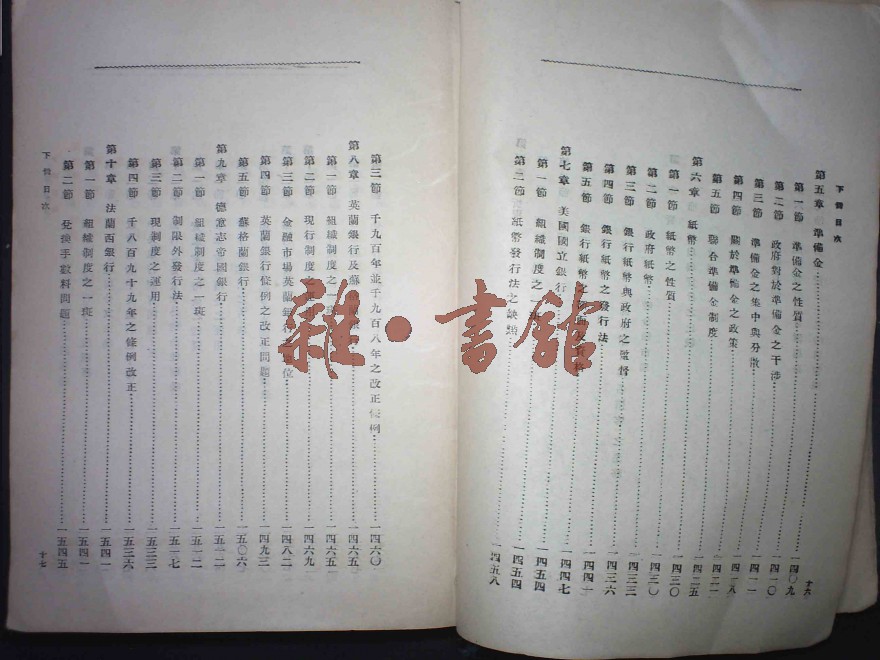 下冊目次
第五章 準備金 一四〇九
第一節 準備金之性質 一四一〇
第二節 政府對於準備金之干涉 一四一一
第三節 準備金之集中與分散 一四一八
第四節 關於準備金之政策 一四二一
第五節 聯合準備金制度 一四二五
第六章 紙幣 一四三〇
第一節 紙幣之性質 一四三〇
第二節 政府紙幣 一四三三
第三節 銀行紙幣與政府之監督 一四三六
第四節 銀行紙幣之發行法 一四四一
第五節 銀行紙幣之 一四四七
第七章 美國國立銀行 一四五四
第一節 組織制度之一 一四五四
第二節 紙幣發行法之缺點 一四五八
十六
第三節 千九百年並千九百八年之改正條例 一四六〇
第八章 英蘭銀行及蘇格蘭銀行 一四六五
第一節 組織制度之一斑 一四六五
第二節 現行制度之運用 一四六九
第三節 金融市場英蘭銀行之地位 一四八二
第四節 英蘭銀行條例之改正問題 一四九三
第五節 蘇格蘭銀行 一五〇六
第九章 德意志帝國銀行 一五一二
第一節 組織制度之一斑 一五一二
第二節 制限外發行法 一五一七
第三節 現制度之運用 一五三三
第四節 千八百九十九年之條例改正 一五三六
第十章 法蘭西銀行 一五四一
第一節 組織制度之一斑 一五四一
第二節 兌換手數料問題 一五四五
下冊目次
十七
雜·書館